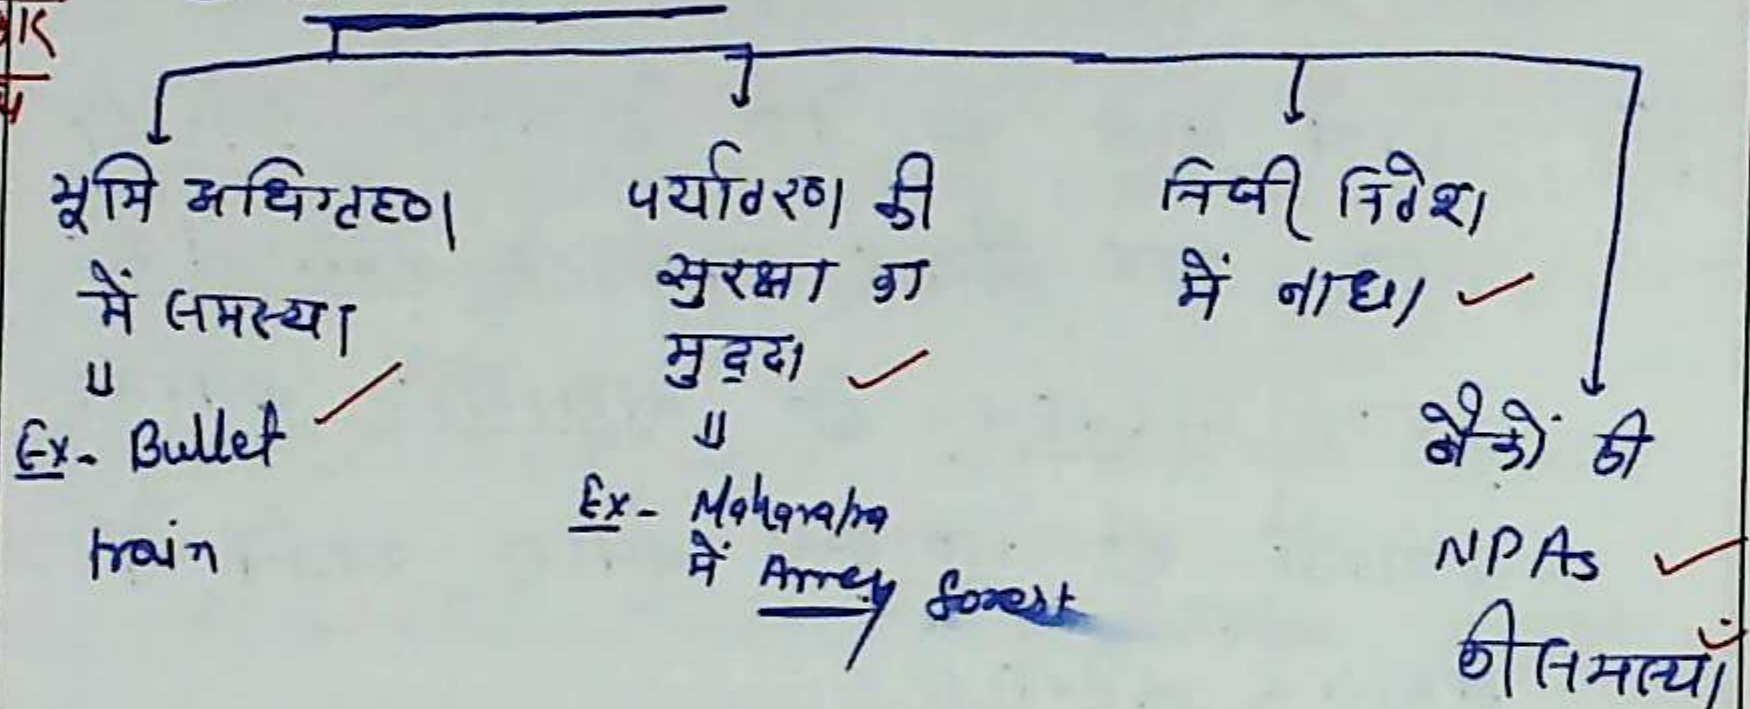 भूमि अधिग्रहण
में समस्या
Ex- Bullet
train
पर्यावरण की
सुरक्षा का
मुद्दा
Ex- Maharahra
में Arrey forest
निजी निवेश
में बाधा
बैंकों की
NPAs
की समस्या